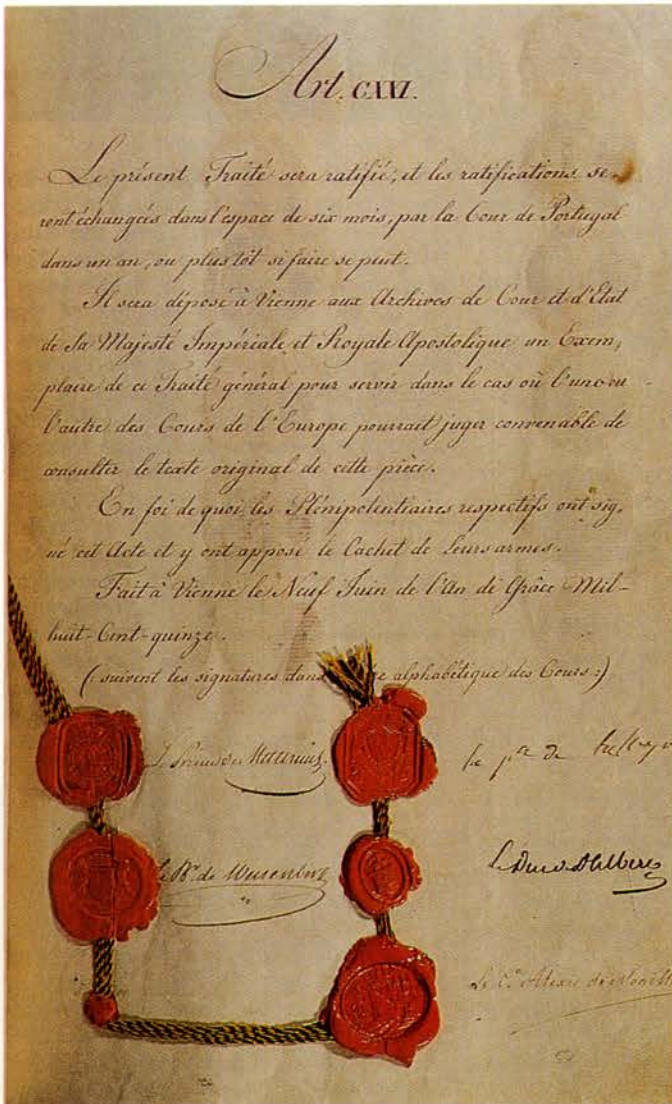 Art. CXXI.
Le présent Traité sera ratifié, et les ratifications se-
ront échangées dans l'espace de six mois, par la Cour de Portugal
dans un an, ou plus tôt si faire se peut.
Il sera déposé à Vienne aux Archives de Cour et d'Etat
de Sa Majesté Impériale et Royale Apostolique un Exem,
plaire de ce Traité général pour servir dans le cas où l'une ou
l'autre des Cours de l'Europe pourrait juger convenable de
consulter le texte original de cette pièce.
En foi de quoi les Plénipotentiaires respectifs ont sig,
né cet Acte et y ont apposé le Cachet de Leurs armes.
Fait à Vienne le Neuf Juin de l'An de Grâce Mil-
huit-Cent-quinze.
(: suivent les signatures dans alphabétique des Cours :)
Le Prince de Metternich. le pce de
Le Bn. de Wessenberg Le Duc d'Alberg
Le Cte Alexis de